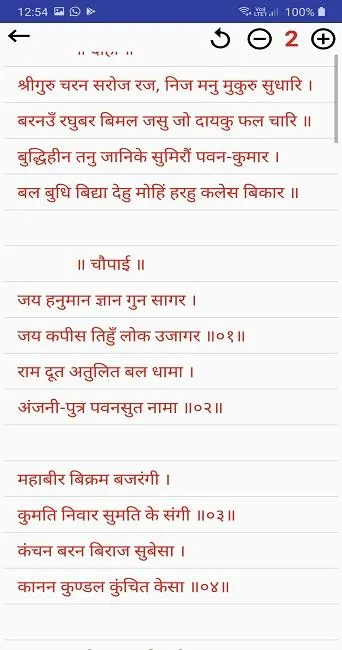 12:54
100%
2
॥ दोहा ॥
श्रीगुरु चरन सरोज रज, निज मनु मुकुरु सुधारि ।
बरनउँ रघुबर बिमल जसु जो दायकु फल चारि ॥
बुद्धिहीन तनु जानिके सुमिरौं पवन-कुमार ।
बल बुधि बिद्या देहु मोहिं हरहु कलेस बिकार ॥
॥ चौपाई ॥
जय हनुमान ज्ञान गुन सागर ।
जय कपीस तिहुँ लोक उजागर ॥०१॥
राम दूत अतुलित बल धामा ।
अंजनी-पुत्र पवनसुत नामा ॥०२॥
महाबीर बिक्रम बजरंगी ।
कुमति निवार सुमति के संगी ॥०३॥
कंचन बरन बिराज सुबेसा ।
कानन कुण्डल कुंचित केसा ॥०४॥